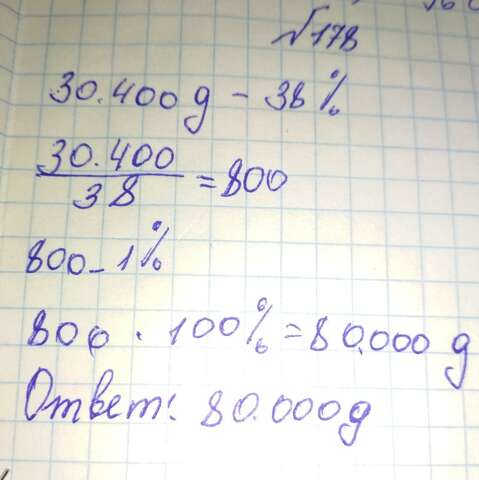 √178
30.400g - 38%
30.400
38
=800
800-1%
800 · 100%=80.000g
Ответ: 80.000g